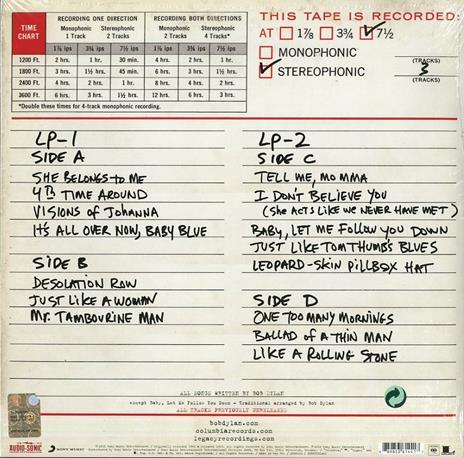 TIME CHART
RECORDING ONE DIRECTION
RECORDING BOTH DIRECTIONS
Monophonic 1 Track
Stereophonic 2 Tracks
Monophonic 2 Tracks
Stereophonic 4 Tracks*
1⅞ ips 3¾ ips 7½ ips 1⅞ ips 3¾ ips 7½ ips
1200 Ft. 2 hrs. 1 hr. 30 min. 4 hrs. 2 hrs. 1 hr.
1800 Ft. 3 hrs. 1½ hrs. 45 min. 6 hrs. 3 hrs. 1½ hrs.
2400 Ft. 4 hrs. 2 hrs. 1 hr. 8 hrs. 4 hrs. 2 hrs.
3600 Ft. 6 hrs. 3 hrs. 1½ hrs. 12 hrs. 6 hrs. 3 hrs.
*Double these times for 4-track monophonic recording.
THIS TAPE IS RECORDED:
AT 1⅞ 3¾ 7½
MONOPHONIC
(TRACKS)
STEREOPHONIC 3
(TRACKS)
LP-1
SIDE A
SHE BELONGS TO ME
4TH TIME AROUND
VISIONS OF JOHANNA
IT'S ALL OVER NOW, BABY BLUE
SIDE B
DESOLATION ROW
JUST LIKE A WOMAN
MR. TAMBOURINE MAN
LP-2
SIDE C
TELL ME, MOMMA
I DON'T BELIEVE YOU
(SHE ACTS LIKE WE NEVER HAVE MET)
BABY, LET ME FOLLOW YOU DOWN
JUST LIKE TOM THUMB'S BLUES
LEOPARD-SKIN PILLBOX HAT
SIDE D
ONE TOO MANY MORNINGS
BALLAD OF A THIN MAN
LIKE A ROLLING STONE
ALL SONGS WRITTEN BY BOB DYLAN
except Baby, Let Me Follow You Down - Traditional arranged by Bob Dylan
ALL TRACKS PREVIOUSLY UNRELEASED
bobdylan.com
columbiarecords.com
legacyrecordings.com
AUDIO-SONIC
SONY MUSIC